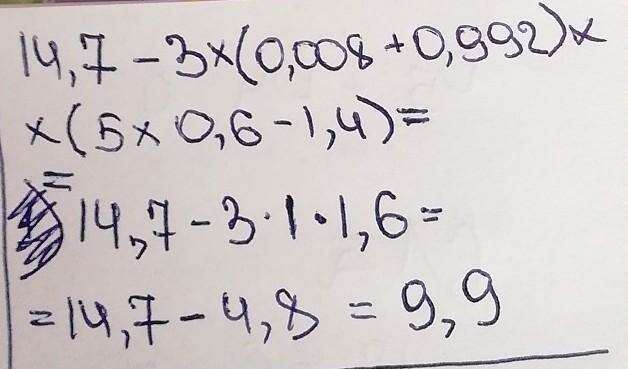 14,7 - 3×(0,008+0,992)×
×(5×0,6-1,4)=
=
14,7-3·1·1,6=
=14,7-4,8 = 9,9